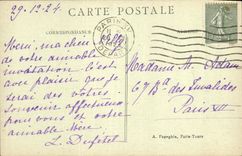 29.12.24. CARTE POSTALE
CORRESPONDANCE
PARIS
Merci, ma chère
de votre aimable
invitation. C'est
avec plaisir que je
serai des vôtres
Souvenir affectueux
pour vous et votre
aimable
L. Dufetel
Madame A. Adam
67 Bd des Invalides
Paris VII
A. Papeghin, Paris-Tours